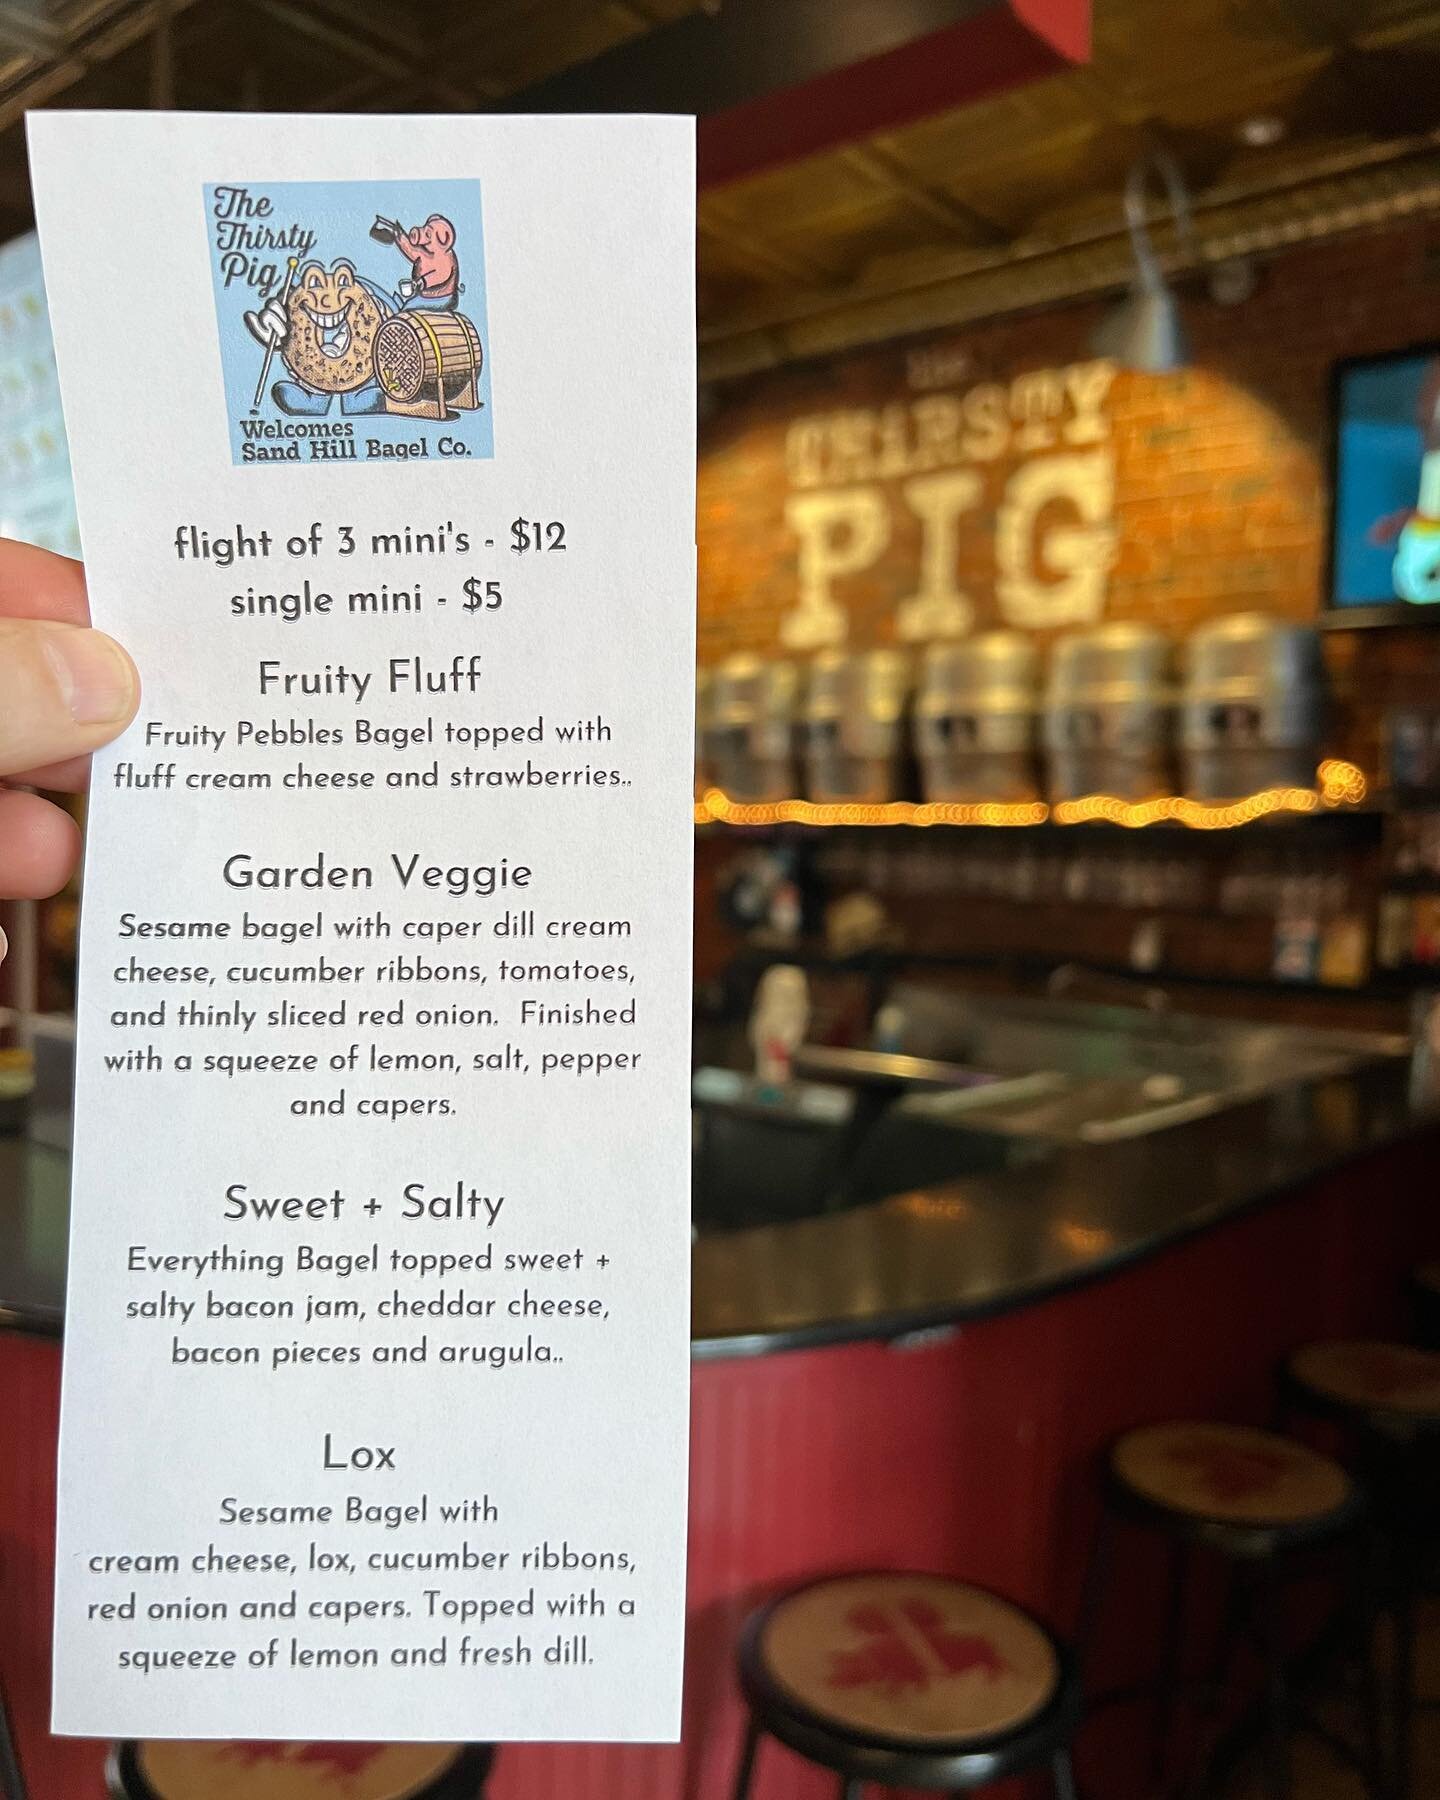 The
Thirsty
Pig
Welcomes
Sand Hill Bagel Co.
flight of 3 mini's - $12
single mini - $5
Fruity Fluff
Fruity Pebbles Bagel topped with
fluff cream cheese and strawberries..
Garden Veggie
Sesame bagel with caper dill cream
cheese, cucumber ribbons, tomatoes,
and thinly sliced red onion.  Finished
with a squeeze of lemon, salt, pepper
and capers.
Sweet + Salty
Everything Bagel topped sweet +
salty bacon jam, cheddar cheese,
bacon pieces and arugula..
Lox
Sesame Bagel with
cream cheese, lox, cucumber ribbons,
red onion and capers. Topped with a
squeeze of lemon and fresh dill.
the
THIRSTY
PIG